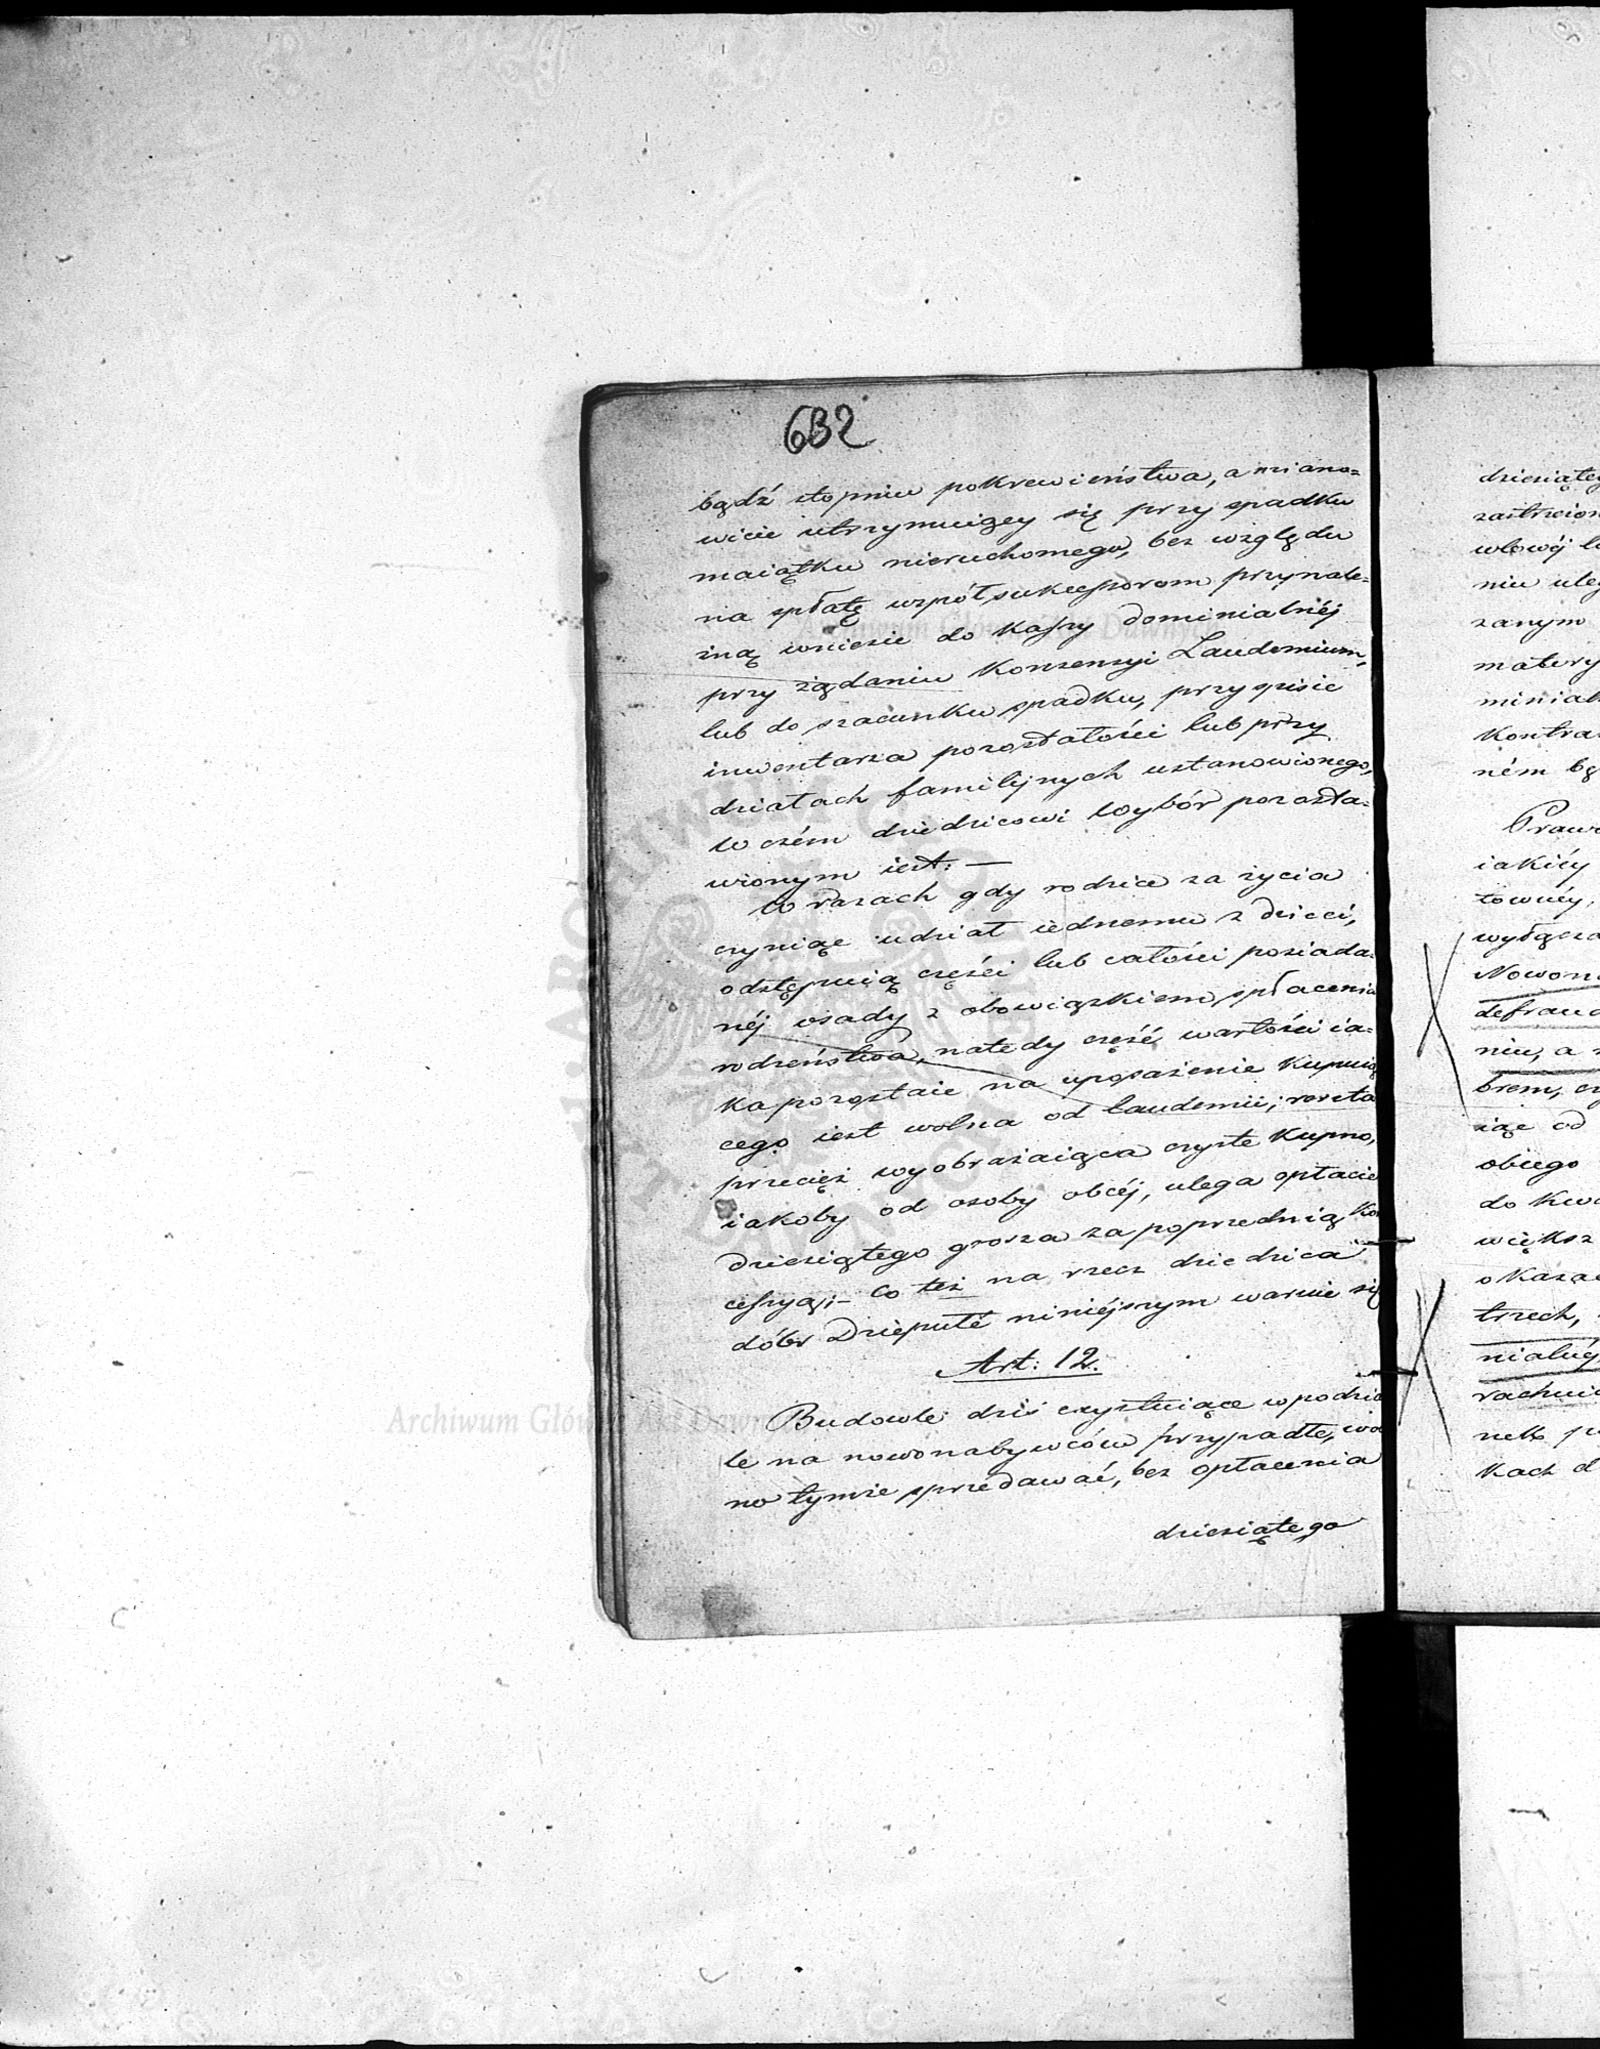 632
bądź stopniu pokrewieństwa, a miano=
wicie utrzymuiący się przy spadku
maiątku nieruchomego, bez względu
na spłatę współsukcessorom przynale=
żną wniesie do kassy dominialnéj
przy żądaniu Konsensyi Laudemium,
lub do szacunku spadku, przy spisie
inwentarza pozostałości lub przy
działach familijnych ustanowionego,
w czém dziedzicowi wybór pozosta=
wionym iest: —
W razach gdy rodzice za życia
czyniąc udział iednemu z dzieci,
odstępuią części lub całości posiada=
néj osady z obowiązkiem spłacenia
rodzeństwa, natedy część wartości ia=
ka pozostaie na uposażenie kupuią
cego iest wolna od laudemii; reszta
przecięż wyobrażaiąca czyste kupno,
iakoby od osoby obcéj, ulega opłacie
dziesiątego grosza za poprzednią Kon
cessyą; – Co też na rzecz dziedzica
dóbr Dziepułć niniéjszym waruie się
Art: 12.
Budowle dziś exystuiące w podzia
le na nowonabywców przypadłe, wol
no tymże sprzedawać, bez opłacenia
dziesiątego
dziesiąteg
wlowéj
zanym
matery
miniał
Kontra
ném bę
Praw
iakiéy
townéy,
wyłącza
Nowon
defraud
niu, a
brem,
iąc od
obcego
do
więksż
okaza
trzech,
nialnéj
kach d
Archiwum Główne Akt Dawnych
Archiwum Główne Akt Dawnych